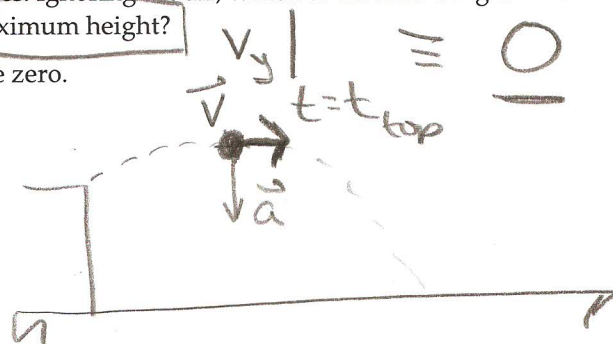 ximum height?
e zero.
V_y | t=t_top ≡ 0
V
a